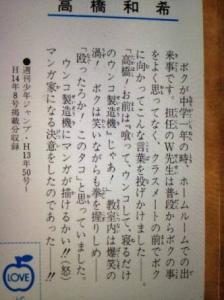 高橋和希
ボクが中学一年の時、ホームルームでの出
来事です。担任のW先生は普段からボクの事
をよく思ってなく、クラスメートの前でボク
に向かってこんな言葉を投げかけました──
「高橋!お前は『喰って、ウンコして、寝るだけ
のウンコ製造機』じゃあ!」教室内は爆笑の
渦!ボクは笑いながらも拳を握りしめ──
「殴ったろか!このタコ」と思っていました。
ウンコ製造機にマンガが描けるかい!!(怒)
マンガ家になる決意をしたのであった!!
●週刊少年ジャンプ・H13年50号~
H14年8号掲載分収録
LOVE